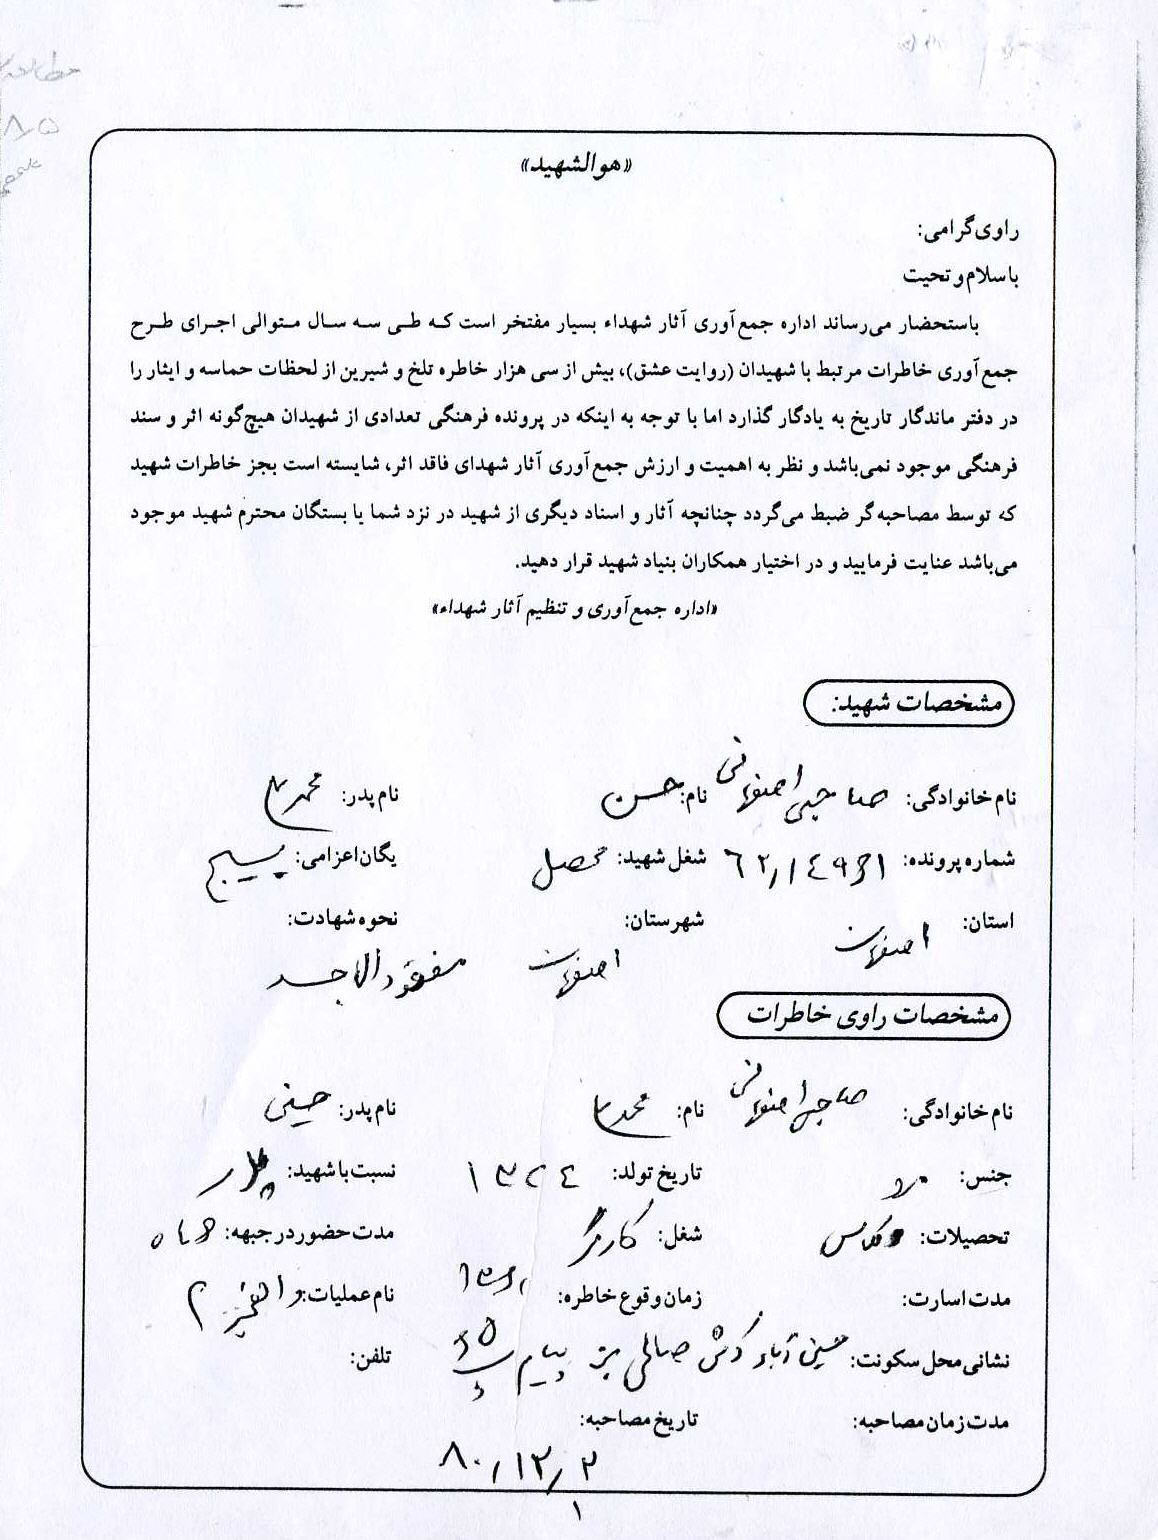 «هوالشهید»
راوی گرامی:
باسلام و تحیت
باستحضار می‌رساند اداره جمع‌آوری آثار شهداء بسیار مفتخر است که طی سه سال متوالی اجرای طرح
جمع‌آوری خاطرات مرتبط با شهیدان (روایت عشق)، بیش از سی هزار خاطره تلخ و شیرین از لحظات حماسه و ایثار را
در دفتر ماندگار تاریخ به یادگار گذارد اما با توجه به اینکه در پرونده فرهنگی تعدادی از شهیدان هیچ‌گونه اثر و سند
فرهنگی موجود نمی‌باشد و نظر به اهمیت و ارزش جمع‌آوری آثار شهدای فاقد اثر، شایسته است بجز خاطرات شهید
که توسط مصاحبه‌گر ضبط می‌گردد چنانچه آثار و اسناد دیگری از شهید در نزد شما یا بستگان محترم شهید موجود
می‌باشد عنایت فرمایید و در اختیار همکاران بنیاد شهید قرار دهید.
«اداره جمع‌آوری و تنظیم آثار شهداء»
مشخصات شهید:
نام خانوادگی: صاحبی اصفهانی نام: حسن نام پدر: محمدعلی
شماره پرونده: شغل شهید: محصل یگان اعزامی: بسیج
استان: اصفهان شهرستان: اصفهان نحوه شهادت: مفقودالاجسد
مشخصات راوی خاطرات
نام خانوادگی: صاحبی اصفهانی نام: محمدعلی نام پدر: حسین
جنس: مرد تاریخ تولد: ۱۳۲۴ نسبت با شهید: پدر
تحصیلات: کلاس شغل: کارگر مدت حضور در جبهه: ماه
مدت اسارت: زمان و قوع خاطره: نام عملیات: والفجر
نشانی محل سکونت: حسین آباد پیام تلفن:
مدت زمان مصاحبه: تاریخ مصاحبه:
۸۰/۱۲/۲
۱